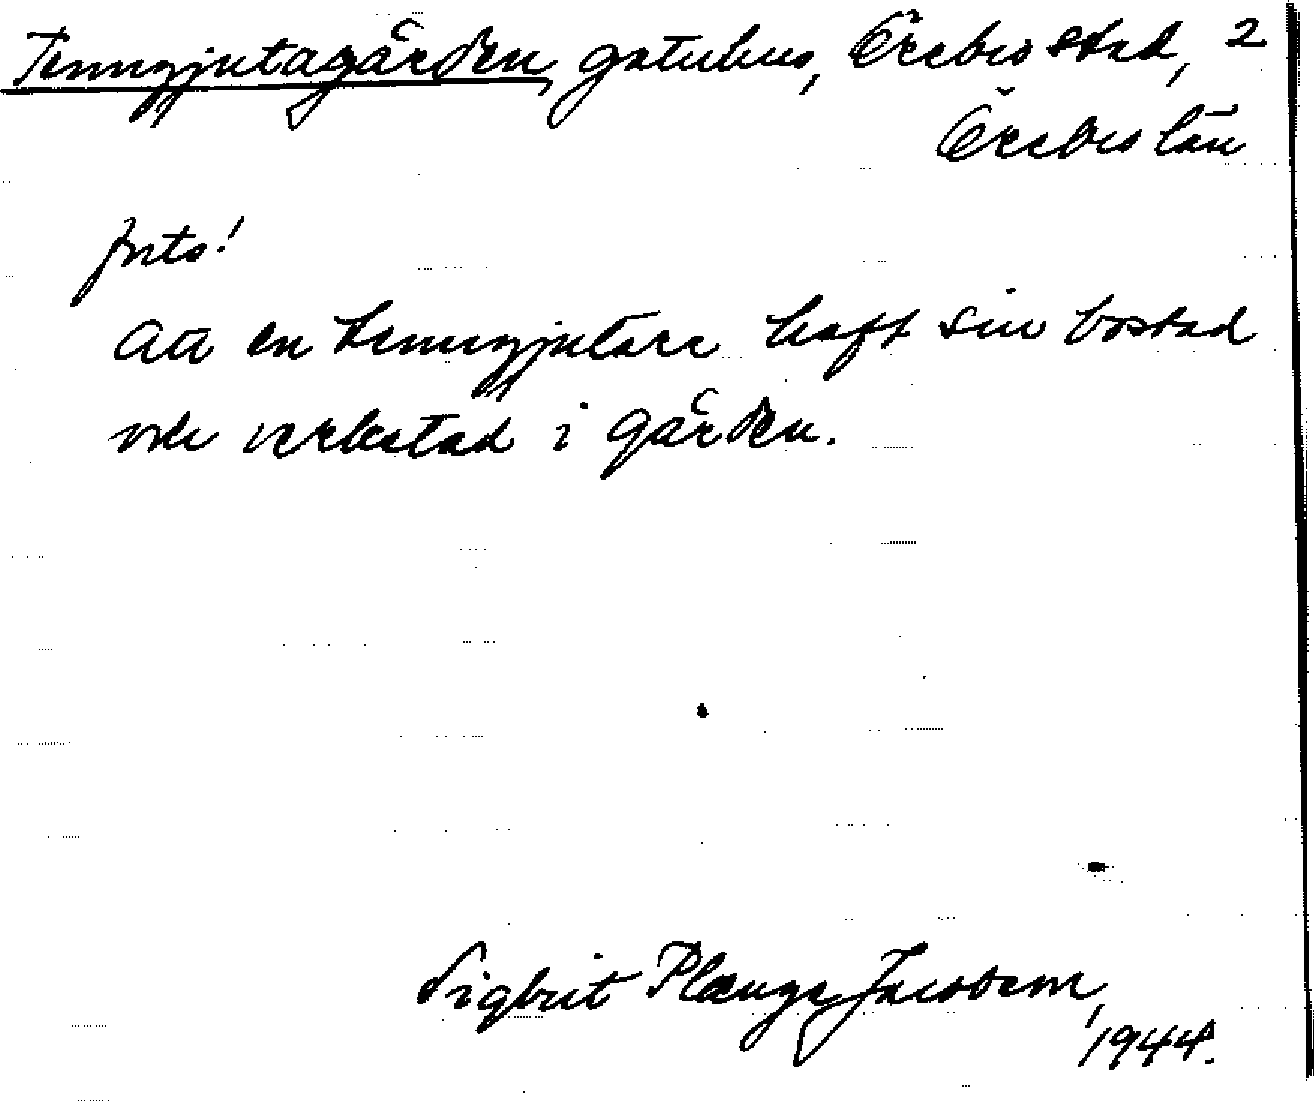 Tenngjutagården, gatuhus, Örebro stad, 2
Örebro län
forts!
att en tenngjutare haft sin bostad
och verkstad i gården.
Sigbrit Plænge Jacobson,
1944.